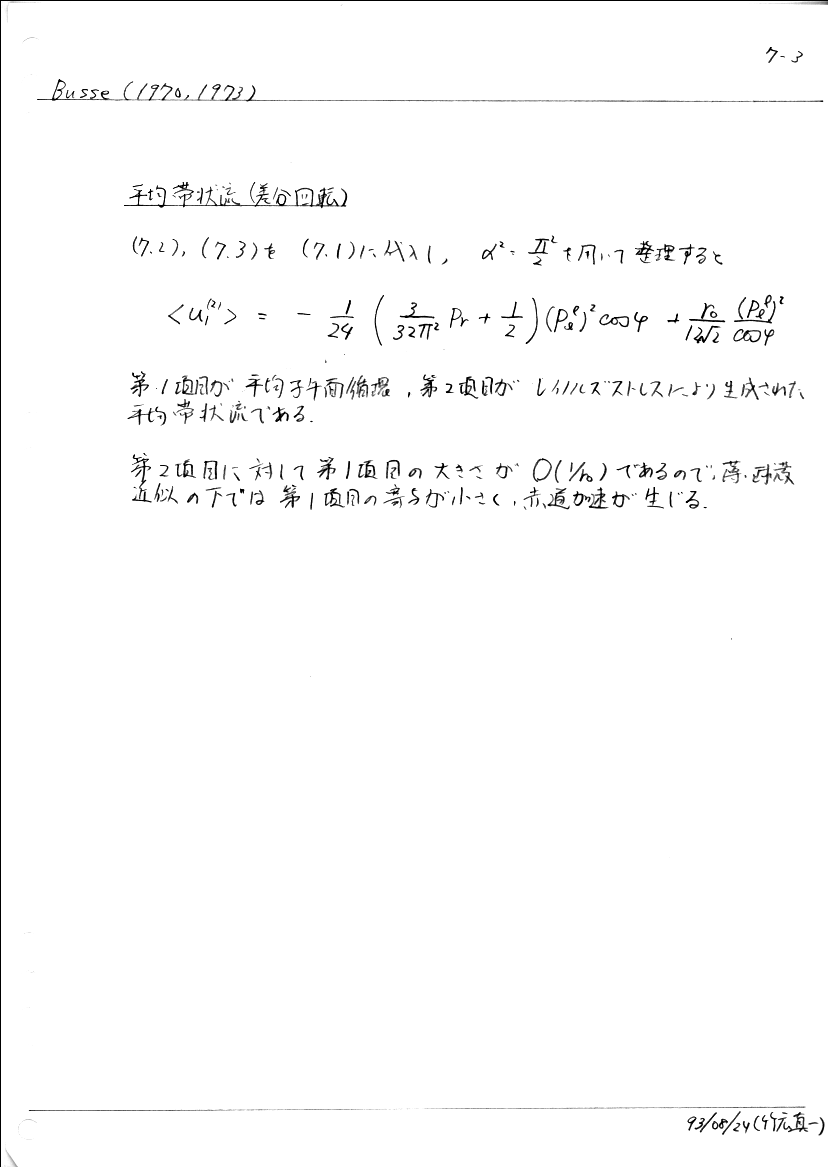 7-3
Busse (1970, 1973)
平均帯状流(差分回転)
(7.2), (7.3)を (7.1)に代入し, α² = π²/2 を用いて整理すると
<u₁⁽²⁾> = - 1/24 ( 3/32π² Pr + 1/2 ) (Pₑᵉ)² cosφ + r₀/12√2 (Pₑᵉ)²/cosφ
第1項目が 平均子午面循環, 第2項目が レイノルズストレスにより生成された
平均帯状流である.
第2項目に対して第1項目の大きさが O(1/r₀) であるので, 薄い球殻
近似の下では第1項目の寄与が小さく, 赤道加速が生じる.
93/08/24(竹広真一)